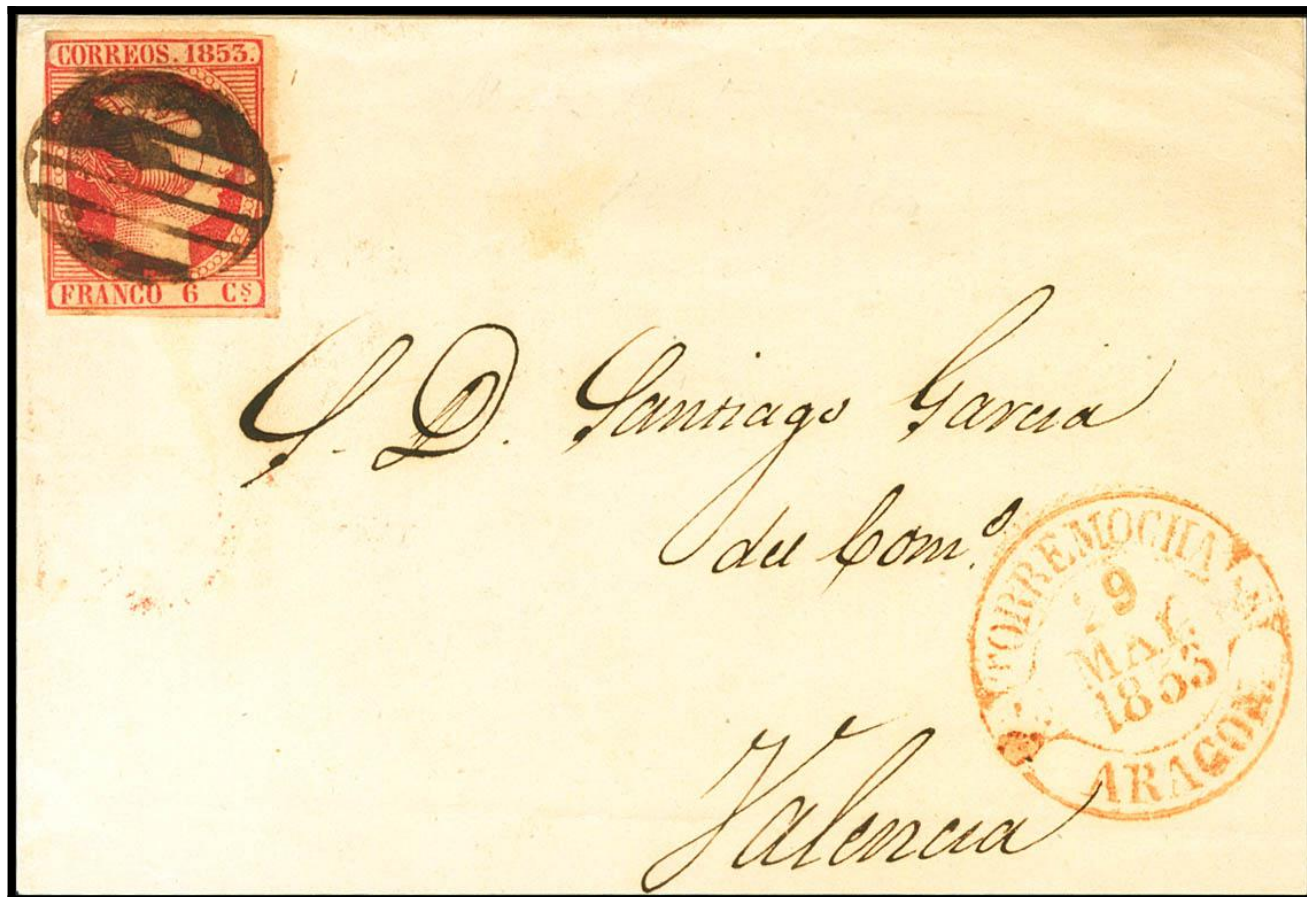 CORREOS. 1853.
FRANCO 6 Cˢ
S. D. Santiago Garcia
del Comº
TORREMOCHA
9
1853
ARAGON.
Valencia